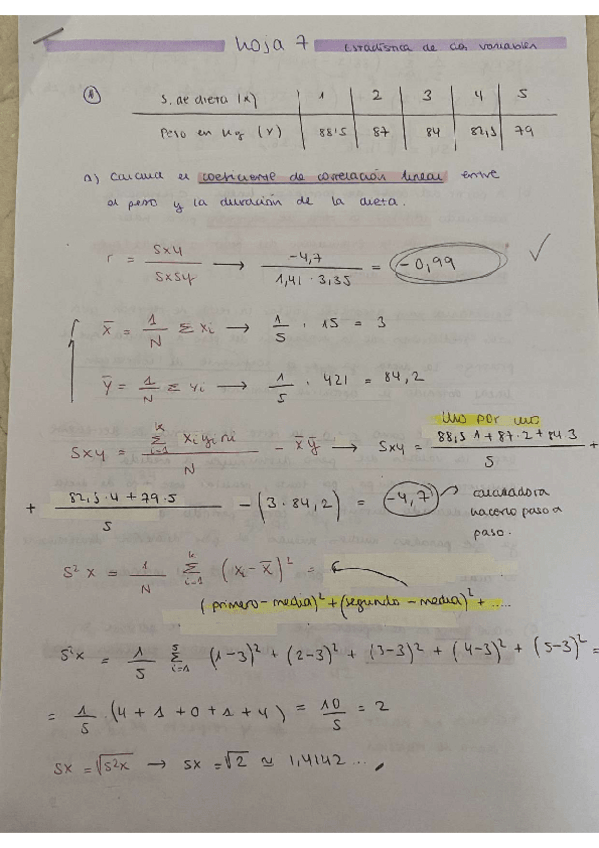 Hoja 7 Estadística de dos variables
1 S. de dieta (X) 1 2 3 4 5
Peso en Kg (Y) 88'5 87 84 82,5 79
a) Calcula el coeficiente de correlación lineal entre
el peso y la duración de la dieta.
r = Sxy / SxSy → -4,7 / 1,41 · 3,35 = -0,99 ✓
x̄ = 1/N Σ xi → 1/5 · 15 = 3
ȳ = 1/N Σ yi → 1/5 · 421 = 84,2
uno por uno
Sxy = Σ^k_{i=1} xi yi ni / N - x̄ȳ → Sxy = 88,5 1 + 87 · 2 + 84 3 / 5 +
+ 82,5 · 4 + 79 . 5 / 5 - (3 · 84,2) = -4,7 → calculadora
hacerlo paso a
paso.
S²x = 1/N Σ^k_{i=1} (xi - x̄)² = ←
(primero - media)² + (segundo - media)² + .....
S²x = 1/5 Σ^5_{i=1} (1-3)² + (2-3)² + (3-3)² + (4-3)² + (5-3)² =
= 1/5 · (4 + 1 + 0 + 1 + 4) = 10/5 = 2
Sx = √S²x → Sx = √2 ≃ 1,4142 ...